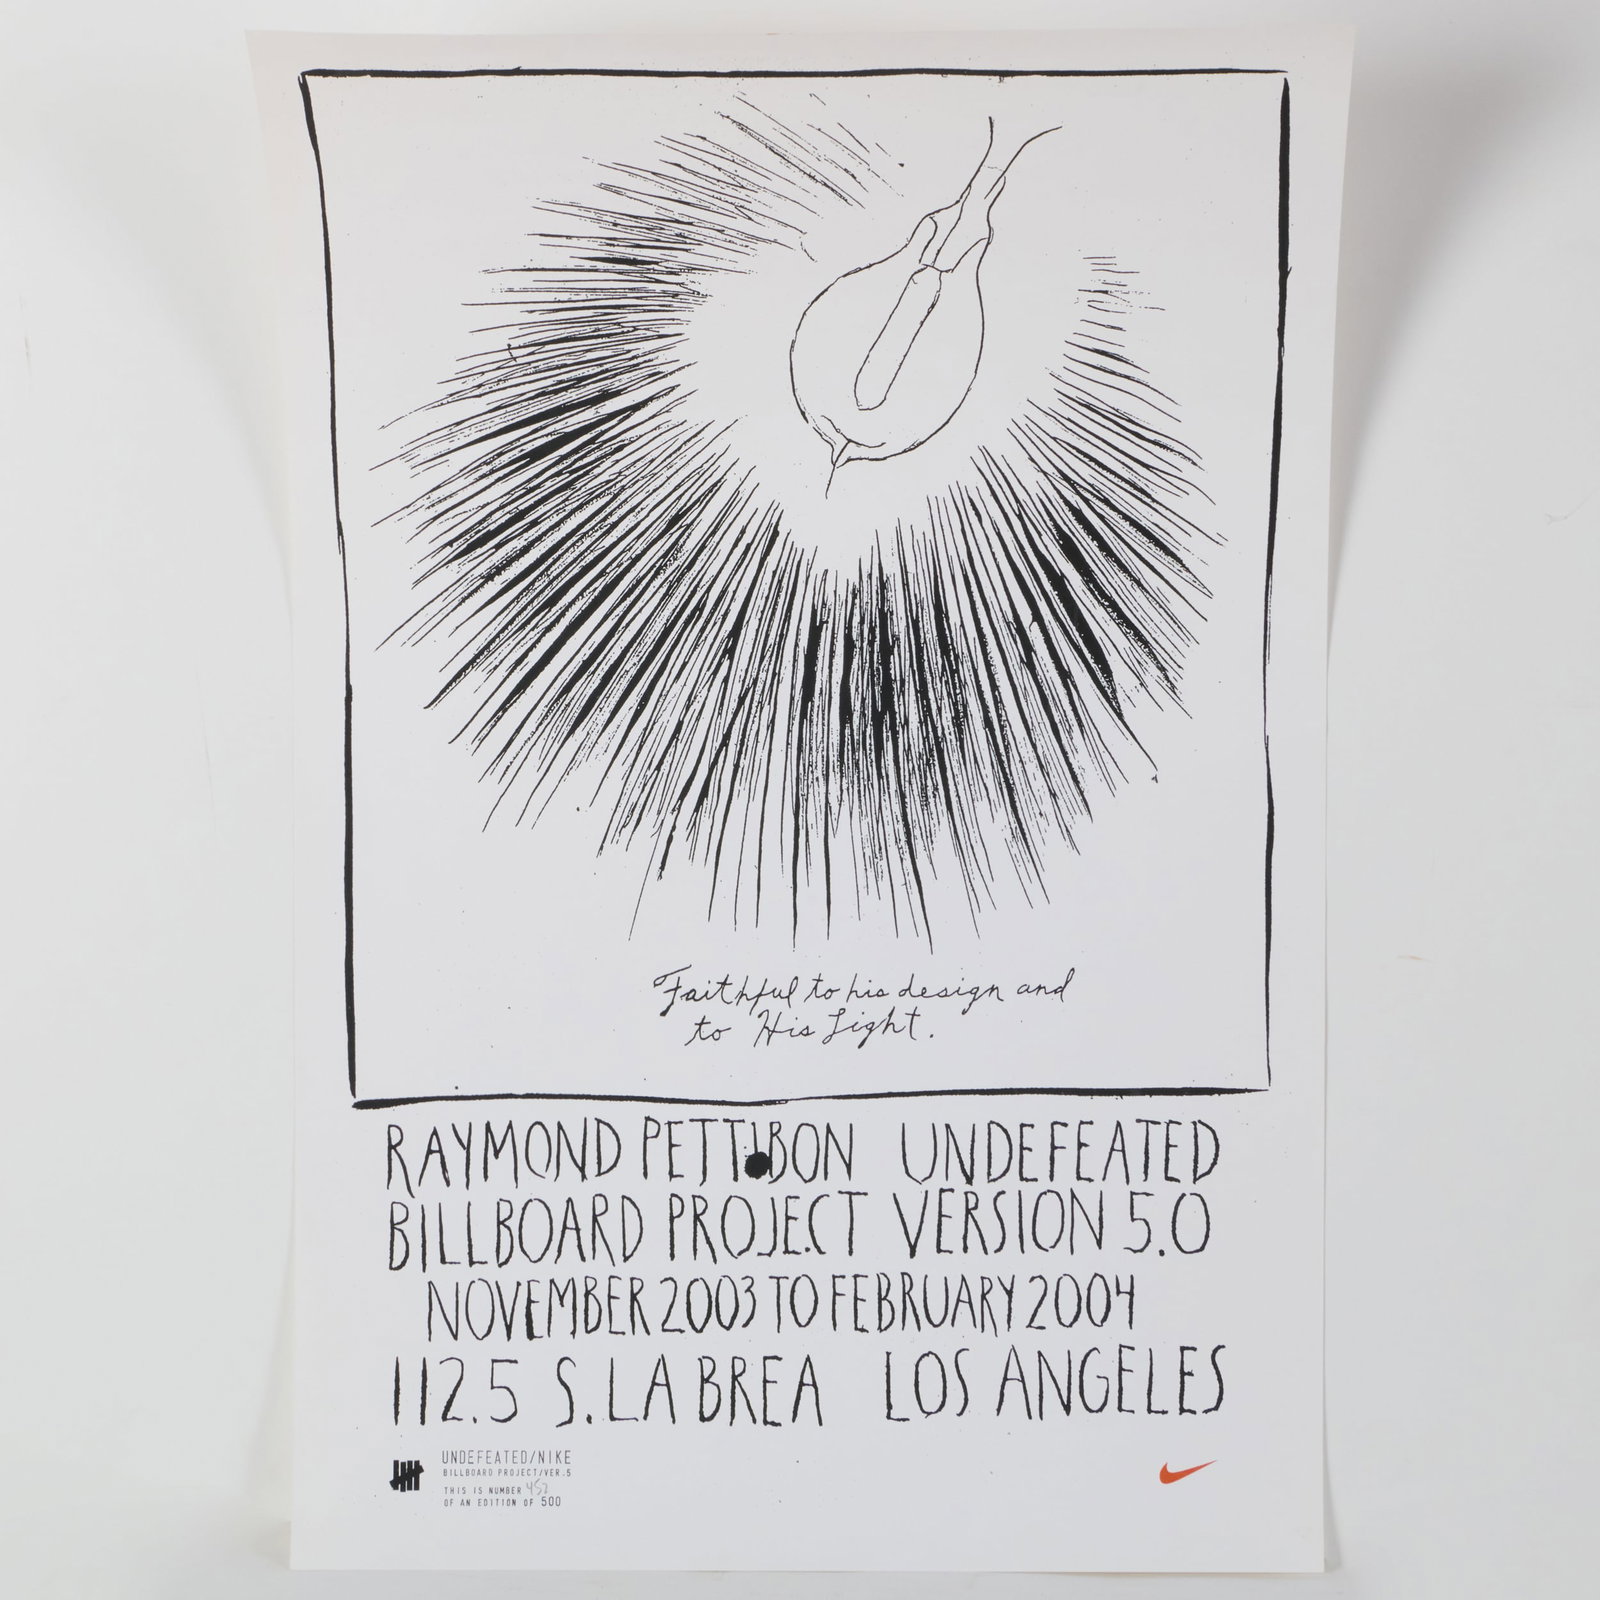 Faithful to his design and
to His Light.
RAYMOND PETTIBON UNDEFEATED
BILLBOARD PROJECT VERSION 5.0
NOVEMBER 2003 TO FEBRUARY 2004
112.5 S. LA BREA LOS ANGELES
UNDEFEATED/NIKE
BILLBOARD PROJECT/VER.5
THIS IS NUMBER
OF AN EDITION OF 500